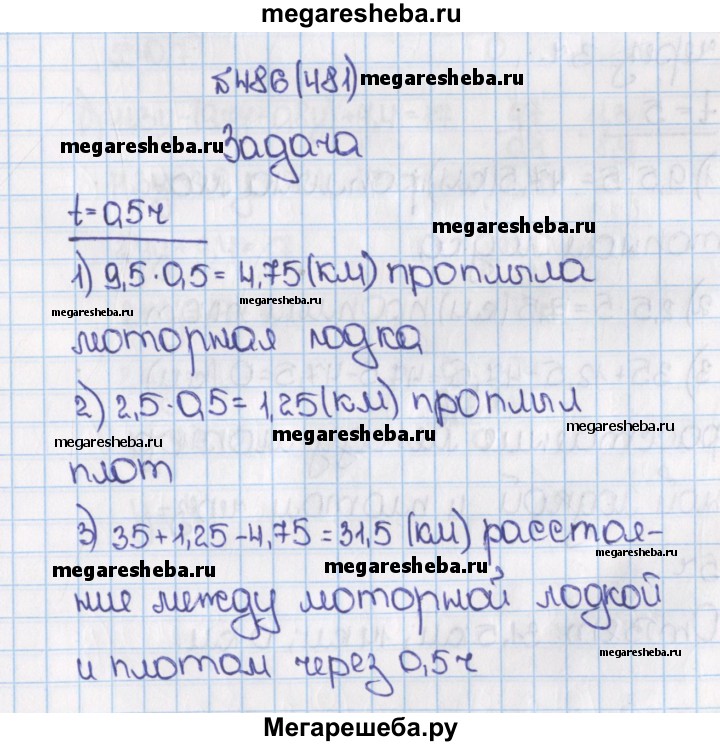 megaresheba.ru
№486(481) megaresheba.ru
megaresheba.ru Задача
t=0,5ч
megaresheba.ru
1) 9,5·0,5=4,75(км) проплыла
megaresheba.ru megaresheba.ru
моторная лодка
2) 2,5·0,5=1,25(км) проплыл
megaresheba.ru megaresheba.ru megaresheba.ru
плот
3) 35+1,25-4,75=31,5 (км) расстоя-
megaresheba.ru megaresheba.ru
ние между моторной лодкой
и плотом через 0,5ч megaresheba.ru
Мегарешеба.ру